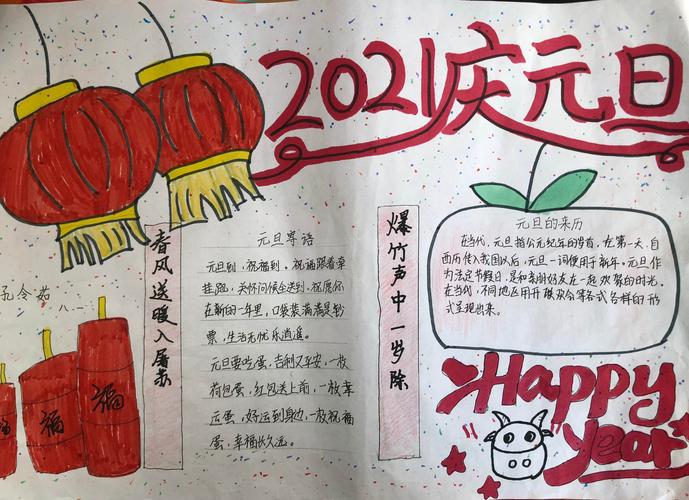 2021庆元旦
元旦的来历
在当代，元旦指公元纪年的岁首，在第一天，自
西历传入我国以后，元旦一词便用于新年。元旦作
为法定节假日，是和亲朋好友在一起欢聚的时光。
在当代，不同地区用开联欢会等各式各样的形
式呈现出来。
爆竹声中一岁除
元旦寄语
元旦到，祝福到。祝福跟着牵
挂跑，关怀问候全送到，祝愿你
在新的一年里，口袋装满满是钞
票，生活无忧乐逍遥。
元旦要吃蛋，吉利又平安，一枚
荷包蛋，红包送上前，一枚幸
运蛋，好运到身边，一枚祝福
蛋，幸福长久远。
春风送暖入屠苏
孔令茹
八.一
福
福
福
Happy
year